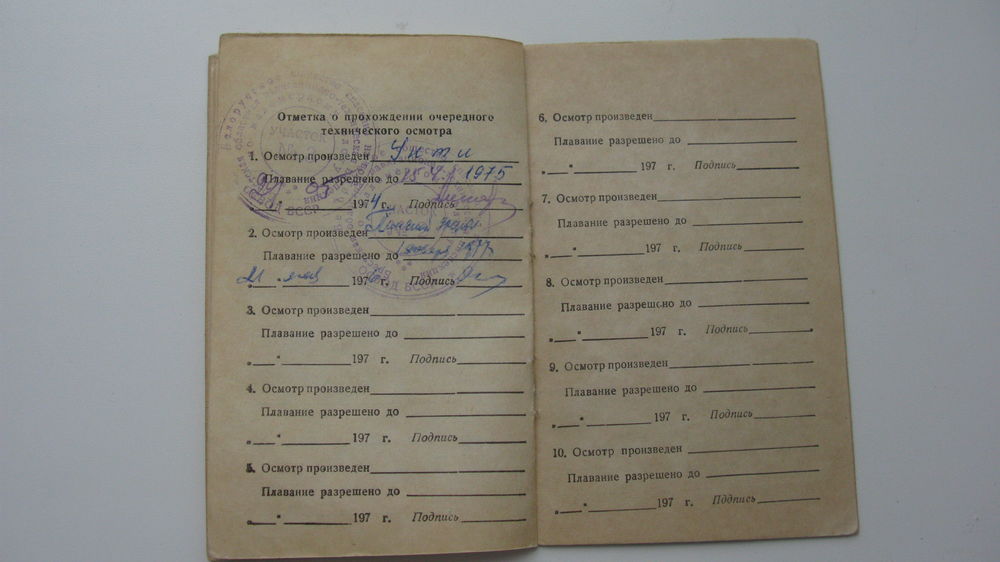 Отметка о прохождении очередного
технического осмотра
УЧАСТОК
1. Осмотр произведен
Плавание разрешено до 1975
1974 г. Подпись
2. Осмотр произведен
Плавание разрешено до 1977
197 Подпись
3. Осмотр произведен
Плавание разрешено до
„ “ 197 г. Подпись
4. Осмотр произведен
Плавание разрешено до
„ “ 197 г. Подпись
5. Осмотр произведен
Плавание разрешено до
„ “ 197 г. Подпись
6. Осмотр произведен
Плавание разрешено до
„ “ 197 г. Подпись
7. Осмотр произведен
Плавание разрешено до
„ “ 197 г. Подпись
8. Осмотр произведен
Плавание разрешено до
„ “ 197 г. Подпись
9. Осмотр произведен
Плавание разрешено до
„ “ 197 г. Подпись
10. Осмотр произведен
Плавание разрешено до
„ “ 197 г. Подпись